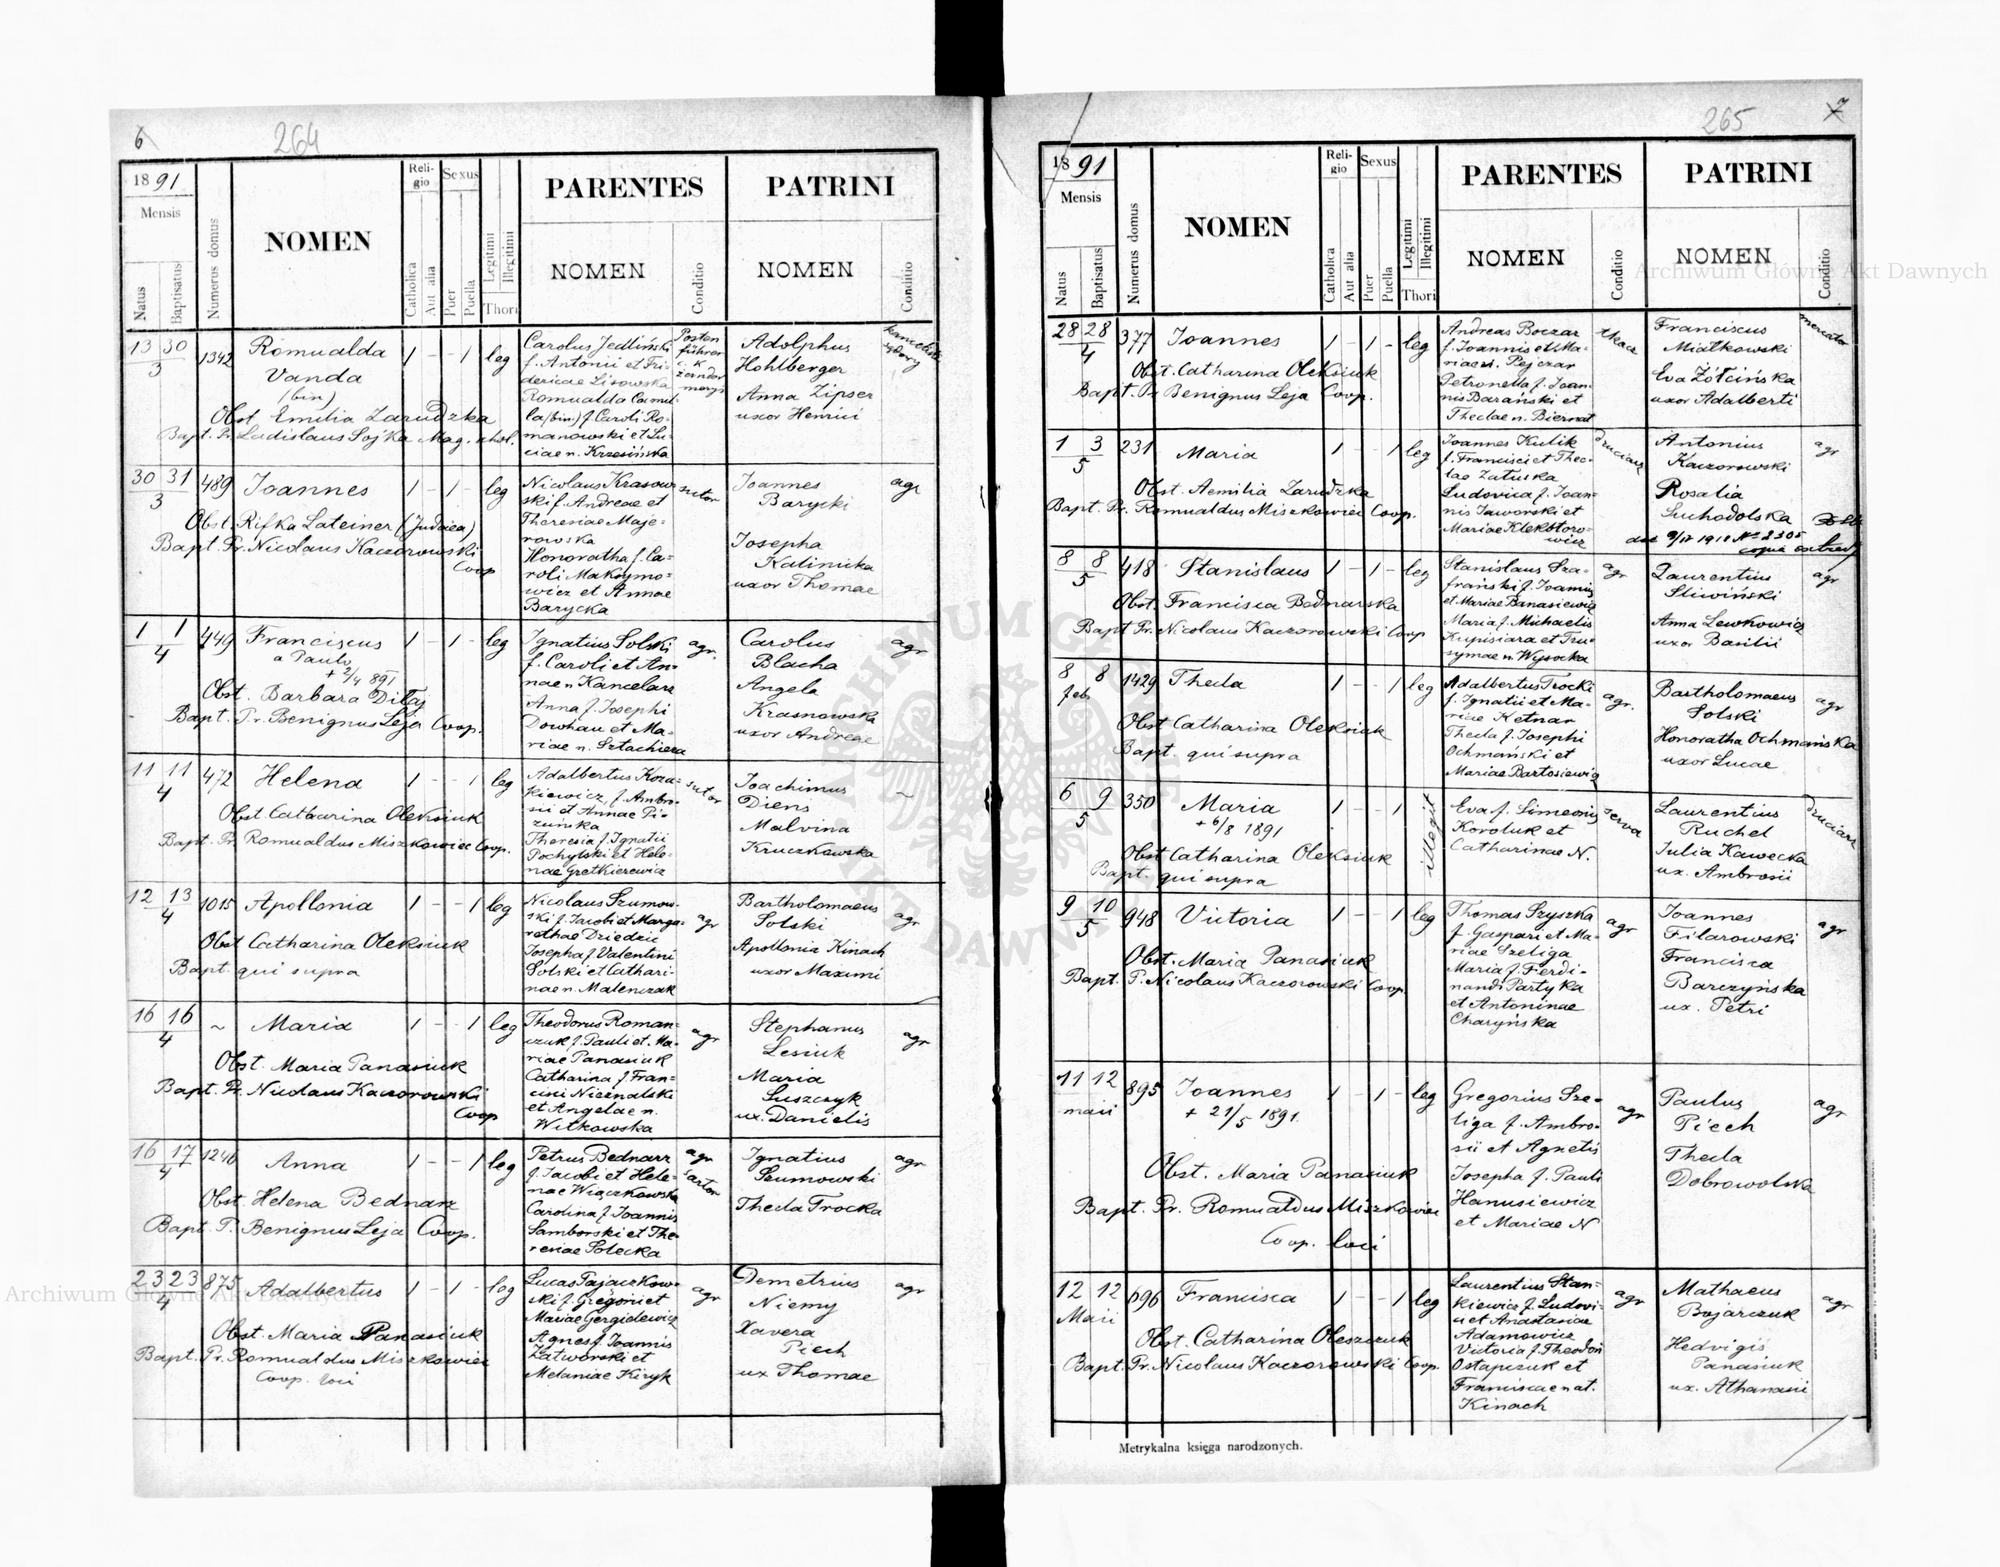 6
264
1891
Mensis
Natus
Baptisatus
Numerus domus
NOMEN
Reli-
gio
Catholica
Aut alia
Sexus
Puer
Puella
Legitimi
Illegitimi
Thori
PARENTES
NOMEN
Conditio
PATRINI
NOMEN
Conditio
13 30
3
1342
Romualda
Vanda
(bin)
Obst. Emilia Zarudzka
Bapt. Pr. Ladislaus Sojka Mag. schol.
1 - - 1 leg
Carolus Jedliński
f. Antonii et Fri-
dericae Lisowska
Romualda Camil-
la (bin) f. Caroli Ro-
manowski et Lu-
ciae n. Krzesińska
Posten
führer
c. k.
żandar
meryi
Adolphus
Hohlberger
Anna Zipser
uxor Henrici
30 31
3
489
Joannes
Obst. Rifka Lateiner (Judaea)
Bapt. Pr. Nicolaus Kaczorowski
Coop
1 - 1 - leg
Nicolaus Krasow-
ski f. Andreae et
Theresiae Maje-
rowska
Honoratha f. Ca-
roli Maksymo-
wicz et Annae
Barycka
sutor
Joannes
Barycki
Josepha
Kalinicka
uxor Thomae
agr
1 1
4
449
Franciscus
a Paulo
+ 2/4 891
Obst. Barbara Ditaj
Bapt. Pr. Benignus Leja Coop.
1 - 1 - leg
Ignatius Solski
f. Caroli et An-
nae n Kancelarz
Anna f. Josephi
Dowhan et Ma-
riae n. Sztachiera
agr.
Carolus
Blacha
Angela
Krasnowska
uxor Andreae
agr
11 11
4
472
Helena
Obst. Catharina Oleksiuk
Bapt. Pr. Romualdus Miszkowiec Coop.
1 - - 1 leg
Adalbertus Koza-
kiewicz, f. Ambro-
sii et Annae Pi-
zuńska
Theresia f. Ignatii
Pochylski et Hele-
nae Gretkierewicz
sutor
Joachimus
Diens
Malvina
Kruczkowska
~
12 13
4
1015
Apollonia
Obst Catharina Oleksiuk
Bapt. qui supra
1 - - 1 leg
Nicolaus Szumow-
ski f. Jacobi et Marga-
rethae Dziedzic
Josepha f. Valentini
Solski et Cathari-
nae n. Malenczak
agr
Bartholomaeus
Solski
Apollonia Kinach
uxor Maximi
agr
16 16
4
~
Maria
Obst. Maria Panasiuk
Bapt. Pr. Nicolaus Kaczorowski
Coop
1 - - 1 leg
Theodorus Roman-
czuk f. Pauli et. Ma-
riae Panasiuk
Catharina f. Fran-
cisci Nieznalski
et Angelae n.
Witkowska
agr
Stephanus
Lesiuk
Maria
Suszczyk
ux. Danielis
agr
16 17
4
1246
Anna
Obst. Helena Bednarz
Bapt. P. Benignus Leja Coop.
1 - - 1 leg
Petrus Bednarz
f. Jacobi et Hele-
nae Wiączkowska
Carolina f. Joannis
Samborski et The-
resiae Solecka
agr
sartor
Ignatius
Szumowski
Thecla Trocka
agr
23 23
4
875
Adalbertus
Obst. Maria Panasiuk
Bapt. Pr. Romualdus Miszkowiec
Coop. loci
1 - 1 - leg
Lucas Pajaczkow-
ski f. Gregorii et
Mariae Gergielewicz
Agnes f. Joannis
Zatworski et
Melaniae Kiryk
agr
Demetrius
Niemy
Xavera
Piech
ux Thomae
agr
265
7
1891
Mensis
Natus
Baptisatus
Numerus domus
NOMEN
Reli-
gio
Catholica
Aut alia
Sexus
Puer
Puella
Legitimi
Illegitimi
Thori
PARENTES
NOMEN
Conditio
PATRINI
NOMEN
Conditio
28 28
4
377
Joannes
Obst. Catharina Oleksiuk
Bapt. Pr Benignus Leja Coop.
1 - 1 - leg
Andreas Boczar
f. Joannis et Ma-
riae n. Pejczar
Petronella f. Joan-
nis Barański et
Theclae n. Biernat
tkacz
Franciscus
Miałkowski
Eva Żółcińska
uxor Adalberti
mercator
1 3
5
231
Maria
Obst. Aemilia Zarudzka
Bapt. Pr. Romualdus Miszkowiec Coop.
1 - - 1 leg
Joannes Kulik
f. Francisci et Thec-
lae Załuska
Ludovica f. Joan-
nis Jaworski et
Mariae Klekotoro-
wicz
druciarz
Antonius
Kaczorowski
Rosalia
Suchodolska
agr
8 8
5
418
Stanislaus
Obst. Francisca Bodnarska
Bapt Pr. Nicolaus Kaczorowski Coop
1 - 1 - leg
Stanislaus Sza-
frański f. Joannis
et Mariae Banasiewicz
Maria f. Michaelis
Kupisiara et Tru-
symae n. Wysocka
agr
Laurentius
Śliwiński
Anna Lewkowicz
uxor Basilii
agr
8 8
feb.
1429
Thecla
Obst Catharina Oleksiuk
Bapt. qui supra
1 - - 1 leg
Adalbertus Trocki
f. Ignatii et Ma-
riae Ketnar
Thecla f. Josephi
Ochmański et
Mariae Bartosiewicz
agr.
Bartholomaeus
Solski
Honoratha Ochmańska
uxor Lucae
agr
6 9
5
350
Maria
+ 6/8 1891
Obst Catharina Oleksiuk
Bapt. qui supra
1 - - 1
illegit
Eva f. Simeonis
Koroluk et
Catharinae N.
serva
Laurentius
Ruchel
Julia Kawecka
ux. Ambrosii
druciarz
9 10
5
948
Victoria
Obst. Maria Panasiuk
Bapt. P. Nicolaus Kaczorowski Coop.
1 - - 1 leg
Thomas Szyszka
f. Gaspari et Ma-
riae Szeliga
Maria f. Ferdi-
nandi Partyka
et Antoninae
Charyńska
agr
Joannes
Filarowski
Francisca
Barczyńska
ux. Petri
agr
11 12
maii
895
Joannes
+ 21/5 1891.
Obst. Maria Panasiuk
Bapt. Pr. Romualdus Miszkowiec
Coop. loci
1 - 1 - leg
Gregorius Sze-
liga f. Ambro-
sii et Agnetis
Josepha f. Pauli
Hanusiewicz
et Mariae N
agr
Paulus
Piech
Thecla
Dobrowolska
agr
12 12
Maii
696
Francisca
Obst. Catharina Oleszczuk
Bapt. Pr. Nicolaus Kaczorowski Coop.
1 - - 1 leg
Laurentius Stan-
kiewicz f. Ludovi-
ci et Anastasiae
Adamowicz
Victoria f. Theodori
Ostapczuk et
Franciscae nat.
Kinach
agr
Mathaeus
Bojarczuk
Hedvigis
Panasiuk
ux. Athanasii
agr
Metrykalna księga narodzonych.
Archiwum Główne Akt Dawnych
Archiwum Główne Akt Dawnych
ARCHIWUM GŁÓWNE
AKT DAWNYCH